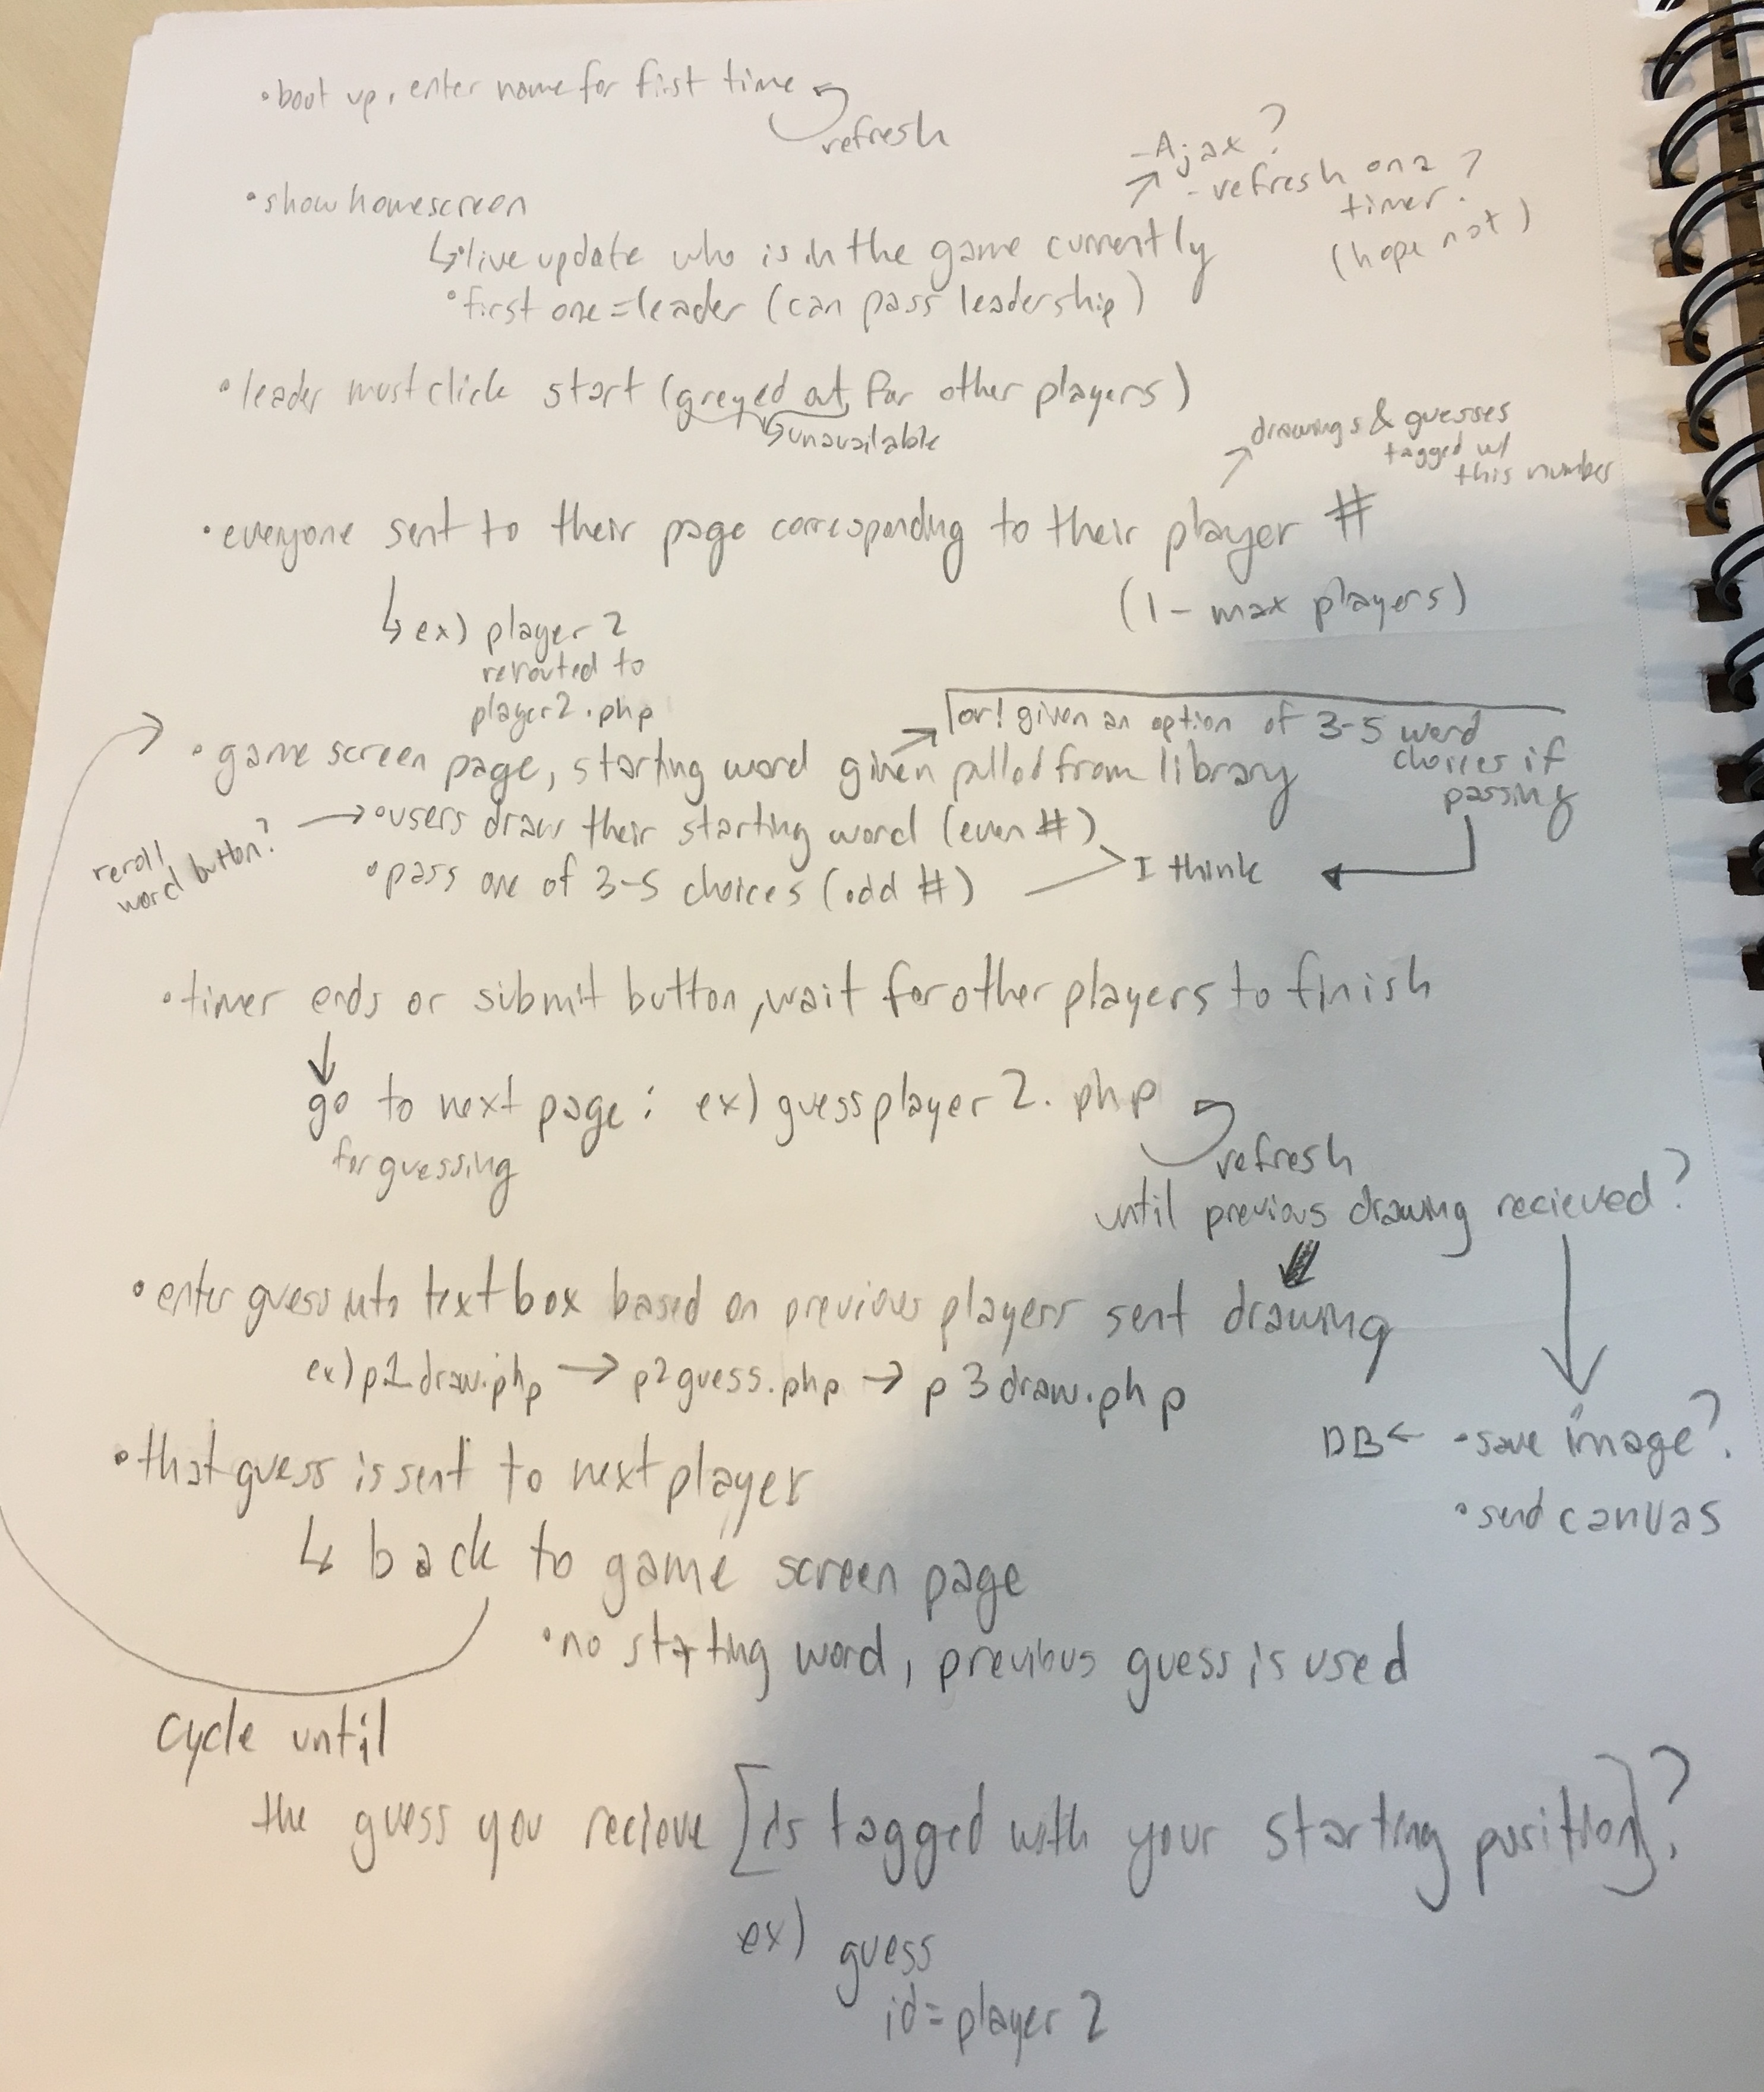 • boot up, enter name for first time
refresh
- Ajax?
- refresh on a timer?
(hope not)
• show homescreen
↳ • live update who is in the game currently
• first one = leader (can pass leadership)
• leader must click start (greyed out for other players)
↳ unavailable
drawings & guesses
tagged w/
this number
• everyone sent to their page corresponding to their player #
(1 - max players)
↳ ex) player 2
rerouted to
player2.php
or! given an option of 3-5 word
choices if
passing
• game screen page, starting word given pulled from library
reroll
word button?
→ • users draw their starting word (even #)
• pass one of 3-5 choices (odd #)
I think
• timer ends or submit button, wait for other players to finish
↓
go to next page: ex) guessplayer2.php
for guessing
refresh
until previous drawing recieved?
• enter guess into textbox based on previous players sent drawing
ex) p1draw.php → p2guess.php → p3draw.php
DB ← • save image?
• send canvas
• that guess is sent to next player
↳ back to game screen page
• no starting word, previous guess is used
cycle until
the guess you recieve [is tagged with your starting position]?
ex) guess
id = player 2